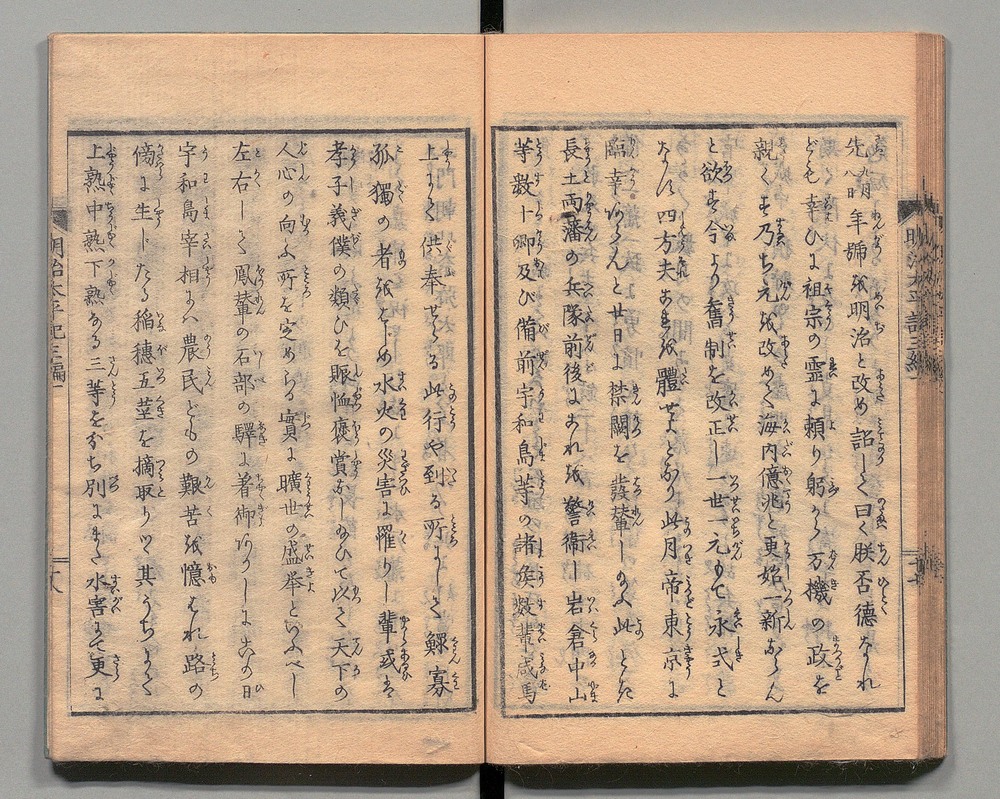 先九月八日年號を明治と改め詔して曰く朕否德なれ
ども幸ひに祖宗の霊に頼り躬から万機の政を
親くす乃ち元を改めて海内億兆と更始一新せん
と欲す今より舊制を改正し一世一元もて永式と
なす四方夫是を體せよとあり此月帝東京に
臨幸あらんと廿日に禁闕を發輦したまふ此とき
長土両藩の兵隊前後にあれを警衛し岩倉中山
等数十卿及び備前宇和島等の諸侯数輩咸馬
明治太平記三編一
十七
上にて供奉せらる此行や到る所にして鰥寡
孤獨の者をはじめ水火の災害に罹りし輩或は
孝子義僕の類ひを賑恤褒賞ありたまひて以て天下の
人心の向ふ所を定めらる實に曠世の盛挙といふべし
左右して鳳輦の石部の驛に着御ありしに此の日
宇和島宰相には農民どもの艱苦を憶はれ路の
傍に生じたる稲穂五茎を摘取りつ其うちにて
上熟中熟下熟なる三等をわち別にまた水害にて更に
明治太平記三編一
十八